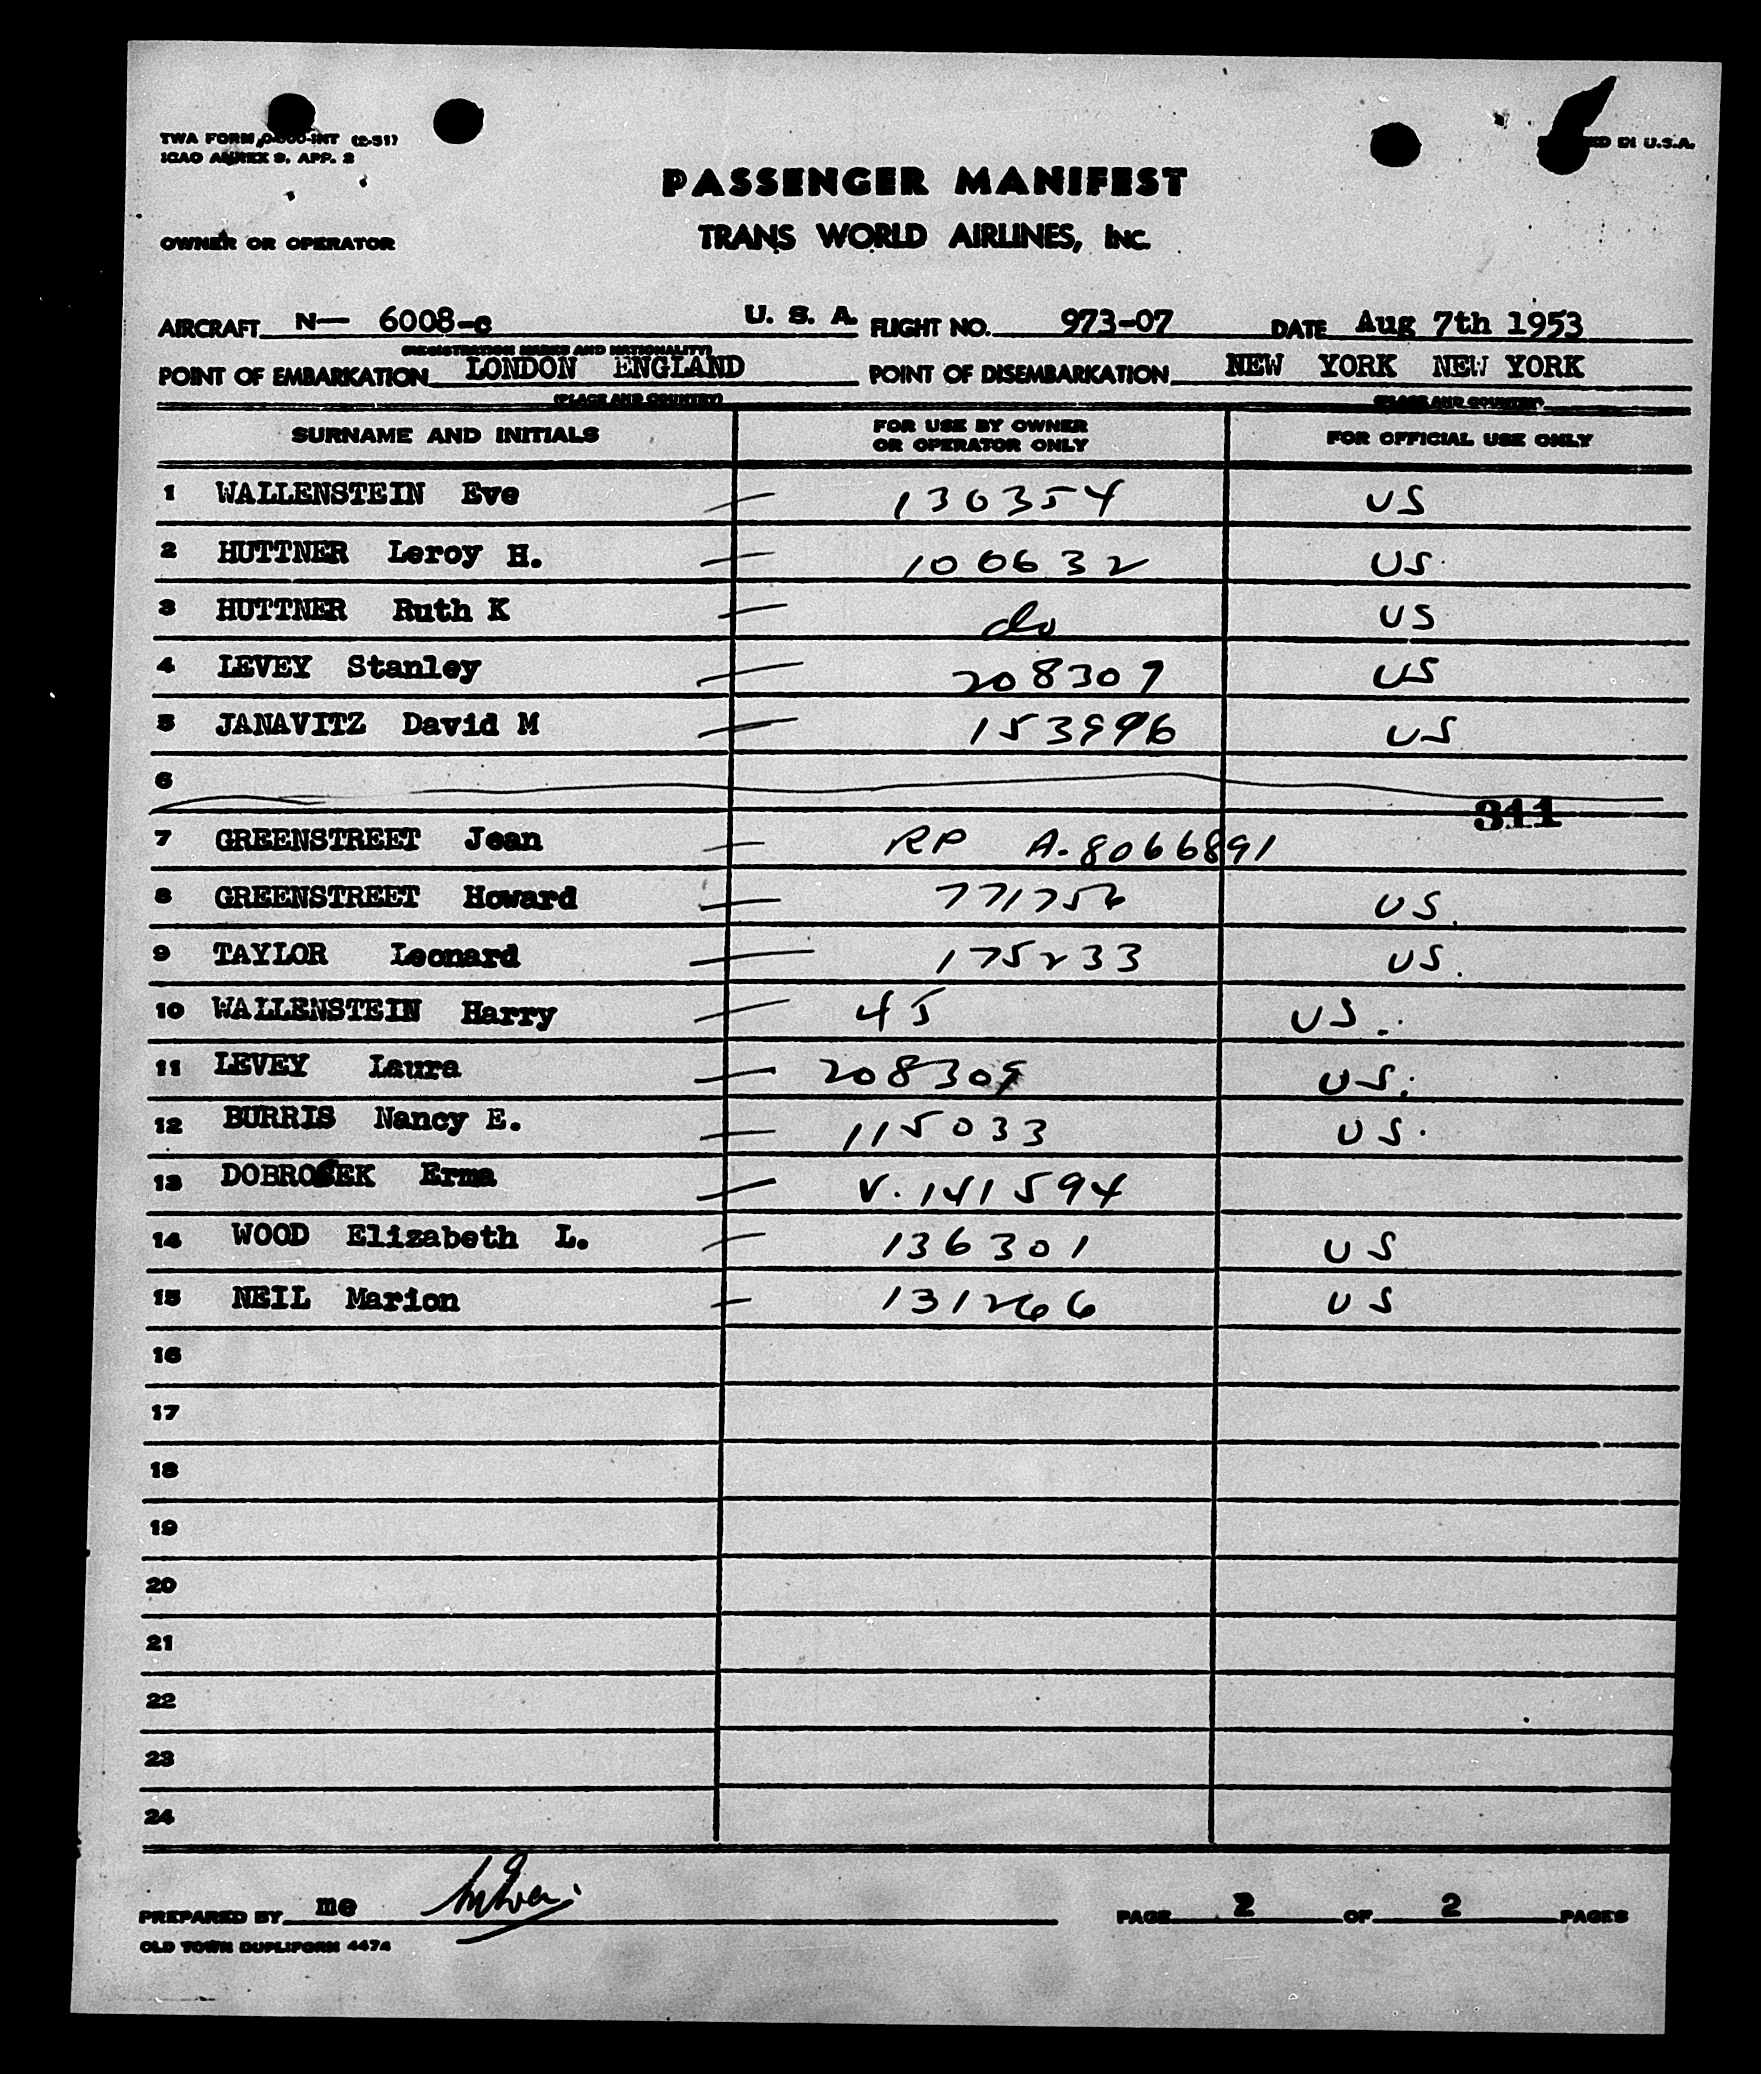 TWA FORM 0-300-INT (2-51)
ICAO ANNEX 9. APP. 2
ED IN U.S.A.
PASSENGER MANIFEST
OWNER OR OPERATOR TRANS WORLD AIRLINES, INC.
AIRCRAFT N— 6008-c U. S. A. FLIGHT NO. 973-07 DATE Aug 7th 1953
(REGISTRATION MARKS AND NATIONALITY)
POINT OF EMBARKATION LONDON ENGLAND POINT OF DISEMBARKATION NEW YORK NEW YORK
(PLACE AND COUNTRY) (PLACE AND COUNTRY)
SURNAME AND INITIALS FOR USE BY OWNER OR OPERATOR ONLY FOR OFFICIAL USE ONLY
1 WALLENSTEIN Eve — 130354 US
2 HUTTNER Leroy H. — 100632 US.
3 HUTTNER Ruth K — do US
4 LEVEY Stanley — 208307 US
5 JANAVITZ David M — 153996 US
6
311
7 GREENSTREET Jean — RP A-8066891
8 GREENSTREET Howard — 771756 US.
9 TAYLOR Leonard — 175233 US.
10 WALLENSTEIN Harry — 45 US.
11 LEVEY Laura — 208309 US.
12 BURRIS Nancy E. — 115033 US.
13 DOBROSEK Erma — V. 141594
14 WOOD Elizabeth L. — 136301 US
15 NEIL Marion — 131266 US
16
17
18
19
20
21
22
23
24
PREPARED BY me PAGE 2 OF 2 PAGES
OLD TOWN DUPLIFORM 4474